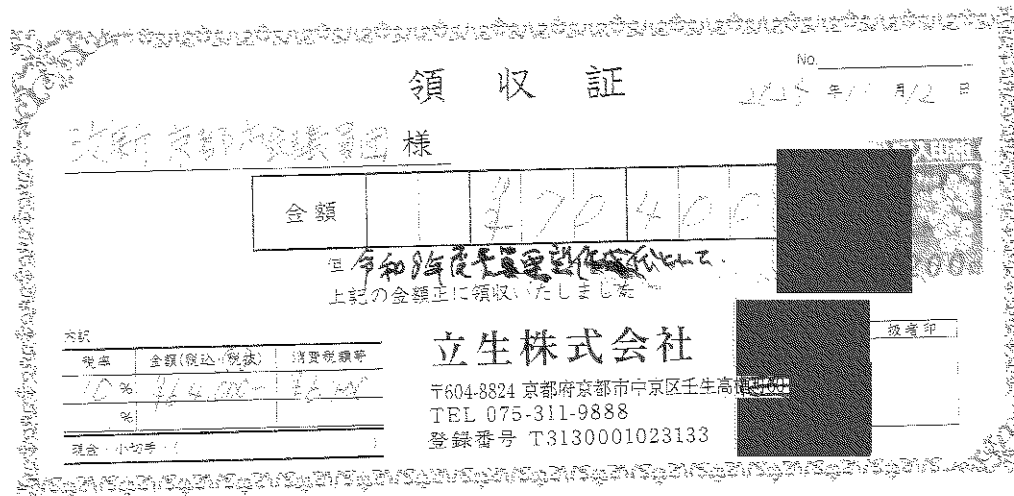 領 収 証
No.
2025 年 11 月 12 日
改新京都市会議員団 様
金額 ¥70400
但 令和8年度予算要望作成代として.
上記の金額正に領収いたしました
内訳
税率 金額(税込・税抜) 消費税額等
10 % ¥64,000- ¥6,400
%
現金・小切手・( )
立生株式会社
〒604-8824 京都府京都市中京区壬生高樋町60
TEL 075-311-9888
登録番号 T3130001023133
扱者印